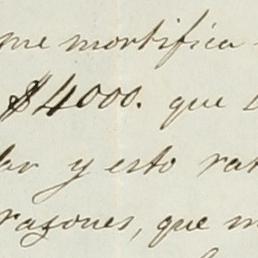 me mortifica
$4000. que
lar y esto rat
razones, que m